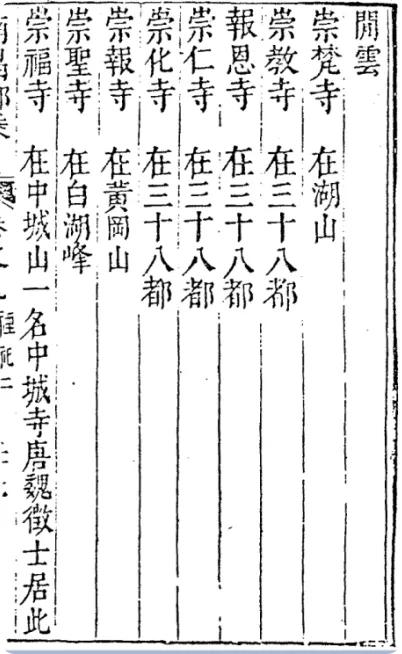 閒雲
崇梵寺 在湖山
崇教寺 在三十八都
報恩寺 在三十八都
崇仁寺 在三十八都
崇化寺 在三十八都
崇報寺 在黃岡山
崇聖寺 在白湖峰
崇福寺 在中城山一名中城寺唐魏徵士居此